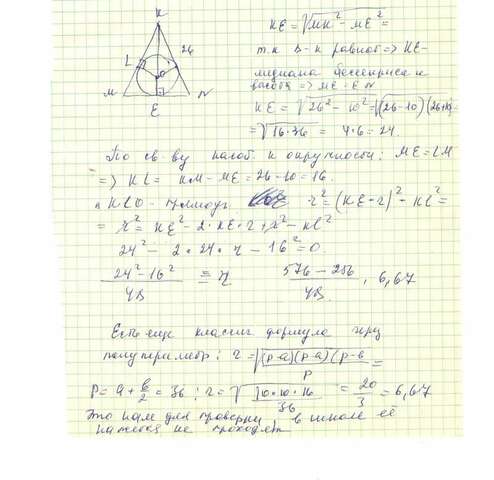 K
26
L
O
M
E
N
KE = √MK² − ME² =
т.к △-к равноб => KE-
медиана биссектриса и
высота => ME = EN
KE = √26² − 10² = √(26-10)(26+10) =
= √16·36 = 4·6 = 24
По св-ву касат. к окружности: ME = LM
=> KL = KM − ME = 26 − 10 = 16.
KLO - прямоуг r² = (KE − r)² − KL² =
= r² = KE² − 2·KE·r + r² − KL²
24² − 2·24·r − 16² = 0.
24² − 16² / 48 = r 576 − 256 / 48 = 6,67
Есть еще классич формула через
полупериметр: r = √(p-a)(p-a)(p-b / p =
p = a + b/2 = 36; r = √10·10·16 / 36 = 20/3 = 6,67
Это нам для проверки, в школе её
не проходят